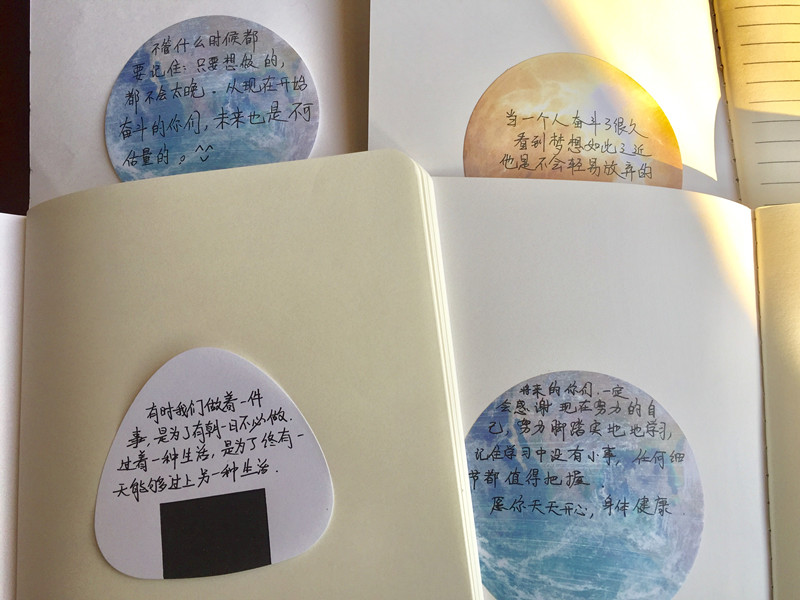 不管什么时候都
要记住：只要想做的，
都不会太晚。从现在开始
奋斗的你们，未来也是不可
估量的。^^
当一个人奋斗了很久
看到梦想如此之近
他是不会轻易放弃的
有时我们做着一件
事，是为了有朝一日不必做，
过着一种生活，是为了终有一
天能够过上另一种生活.
将来的你们.一定
会感谢现在努力的自
己，努力脚踏实地地学习，
记住学习中没有小事，任何细
节都值得把握.
愿你天天开心，身体健康